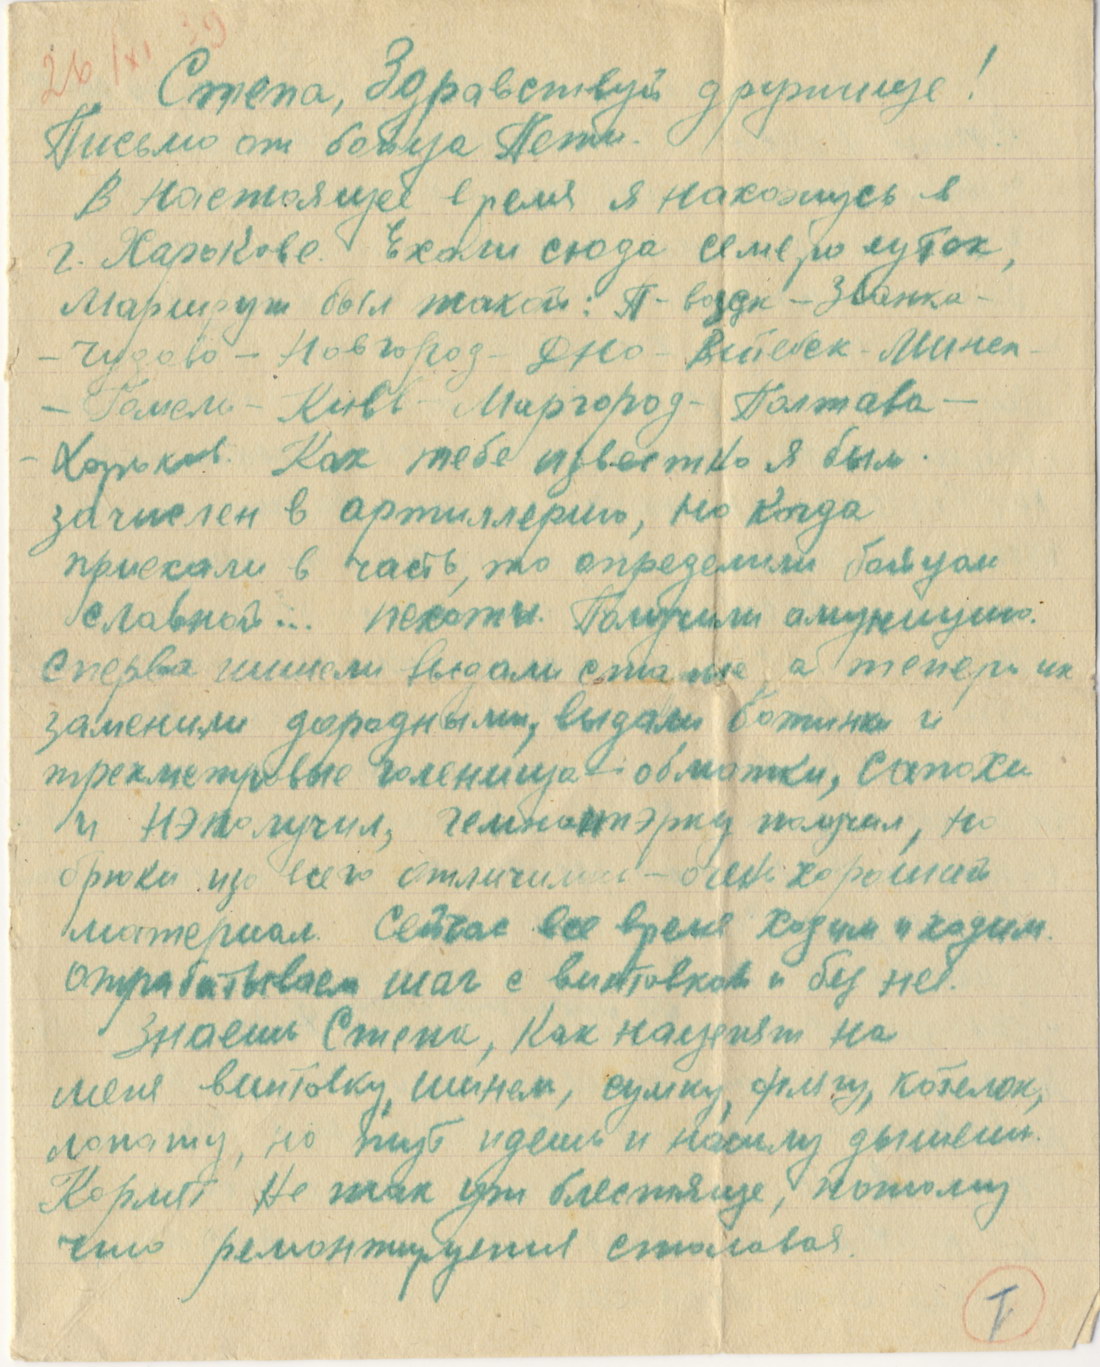 26/XI 39
Степа, Здравствуй дружище!
Письмо от бойца Пети.
В настоящее время я нахожусь в
г. Харькове. Ехали сюда семеро суток,
Маршрут был такой: П-водск – Званка –
– Чудово – Новгород – Дно – Витебск – Минск –
– Гомель – Киев – Миргород – Полтава –
– Харьков. Как тебе известно я был
зачислен в артиллерию, но когда
приехали в часть, то определили бойцом
славной... пехоты. Получили амуницию.
Сперва шинели выдали старые а теперь их
заменили дородными, выдали ботинки и
трехметровые голенища – обмотки, сапохи
и нэполучил, гемнастэрку получил, но
брюки цо всего отличились – очень хороший
материал. Сейчас все время ходим и ходим.
Отрабатываем шаг с винтовкой и без неё.
Знаешь Степа, как нацепят на
меня винтовку, шинель, сумку, флягу, котелок,
лопату, но тут идешь и насилу дышешь.
Кормят не так уж блестяще, потому
что ремонтируется столовая.
I